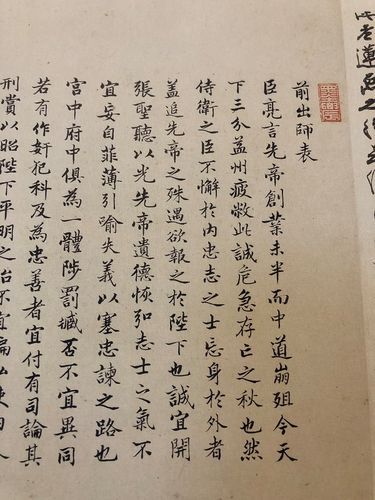 前出師表
臣亮言先帝創業未半而中道崩殂今天
下三分益州疲敝此誠危急存亡之秋也然
侍衛之臣不懈於內忠志之士忘身於外者
蓋追先帝之殊遇欲報之於陛下也誠宜開
張聖聽以光先帝遺德恢弘志士之氣不
宜妄自菲薄引喻失義以塞忠諫之路也
宮中府中俱為一體陟罰臧否不宜異同
若有作奸犯科及為忠善者宜付有司論其
刑賞以昭陛下平明之治不宜偏私使內